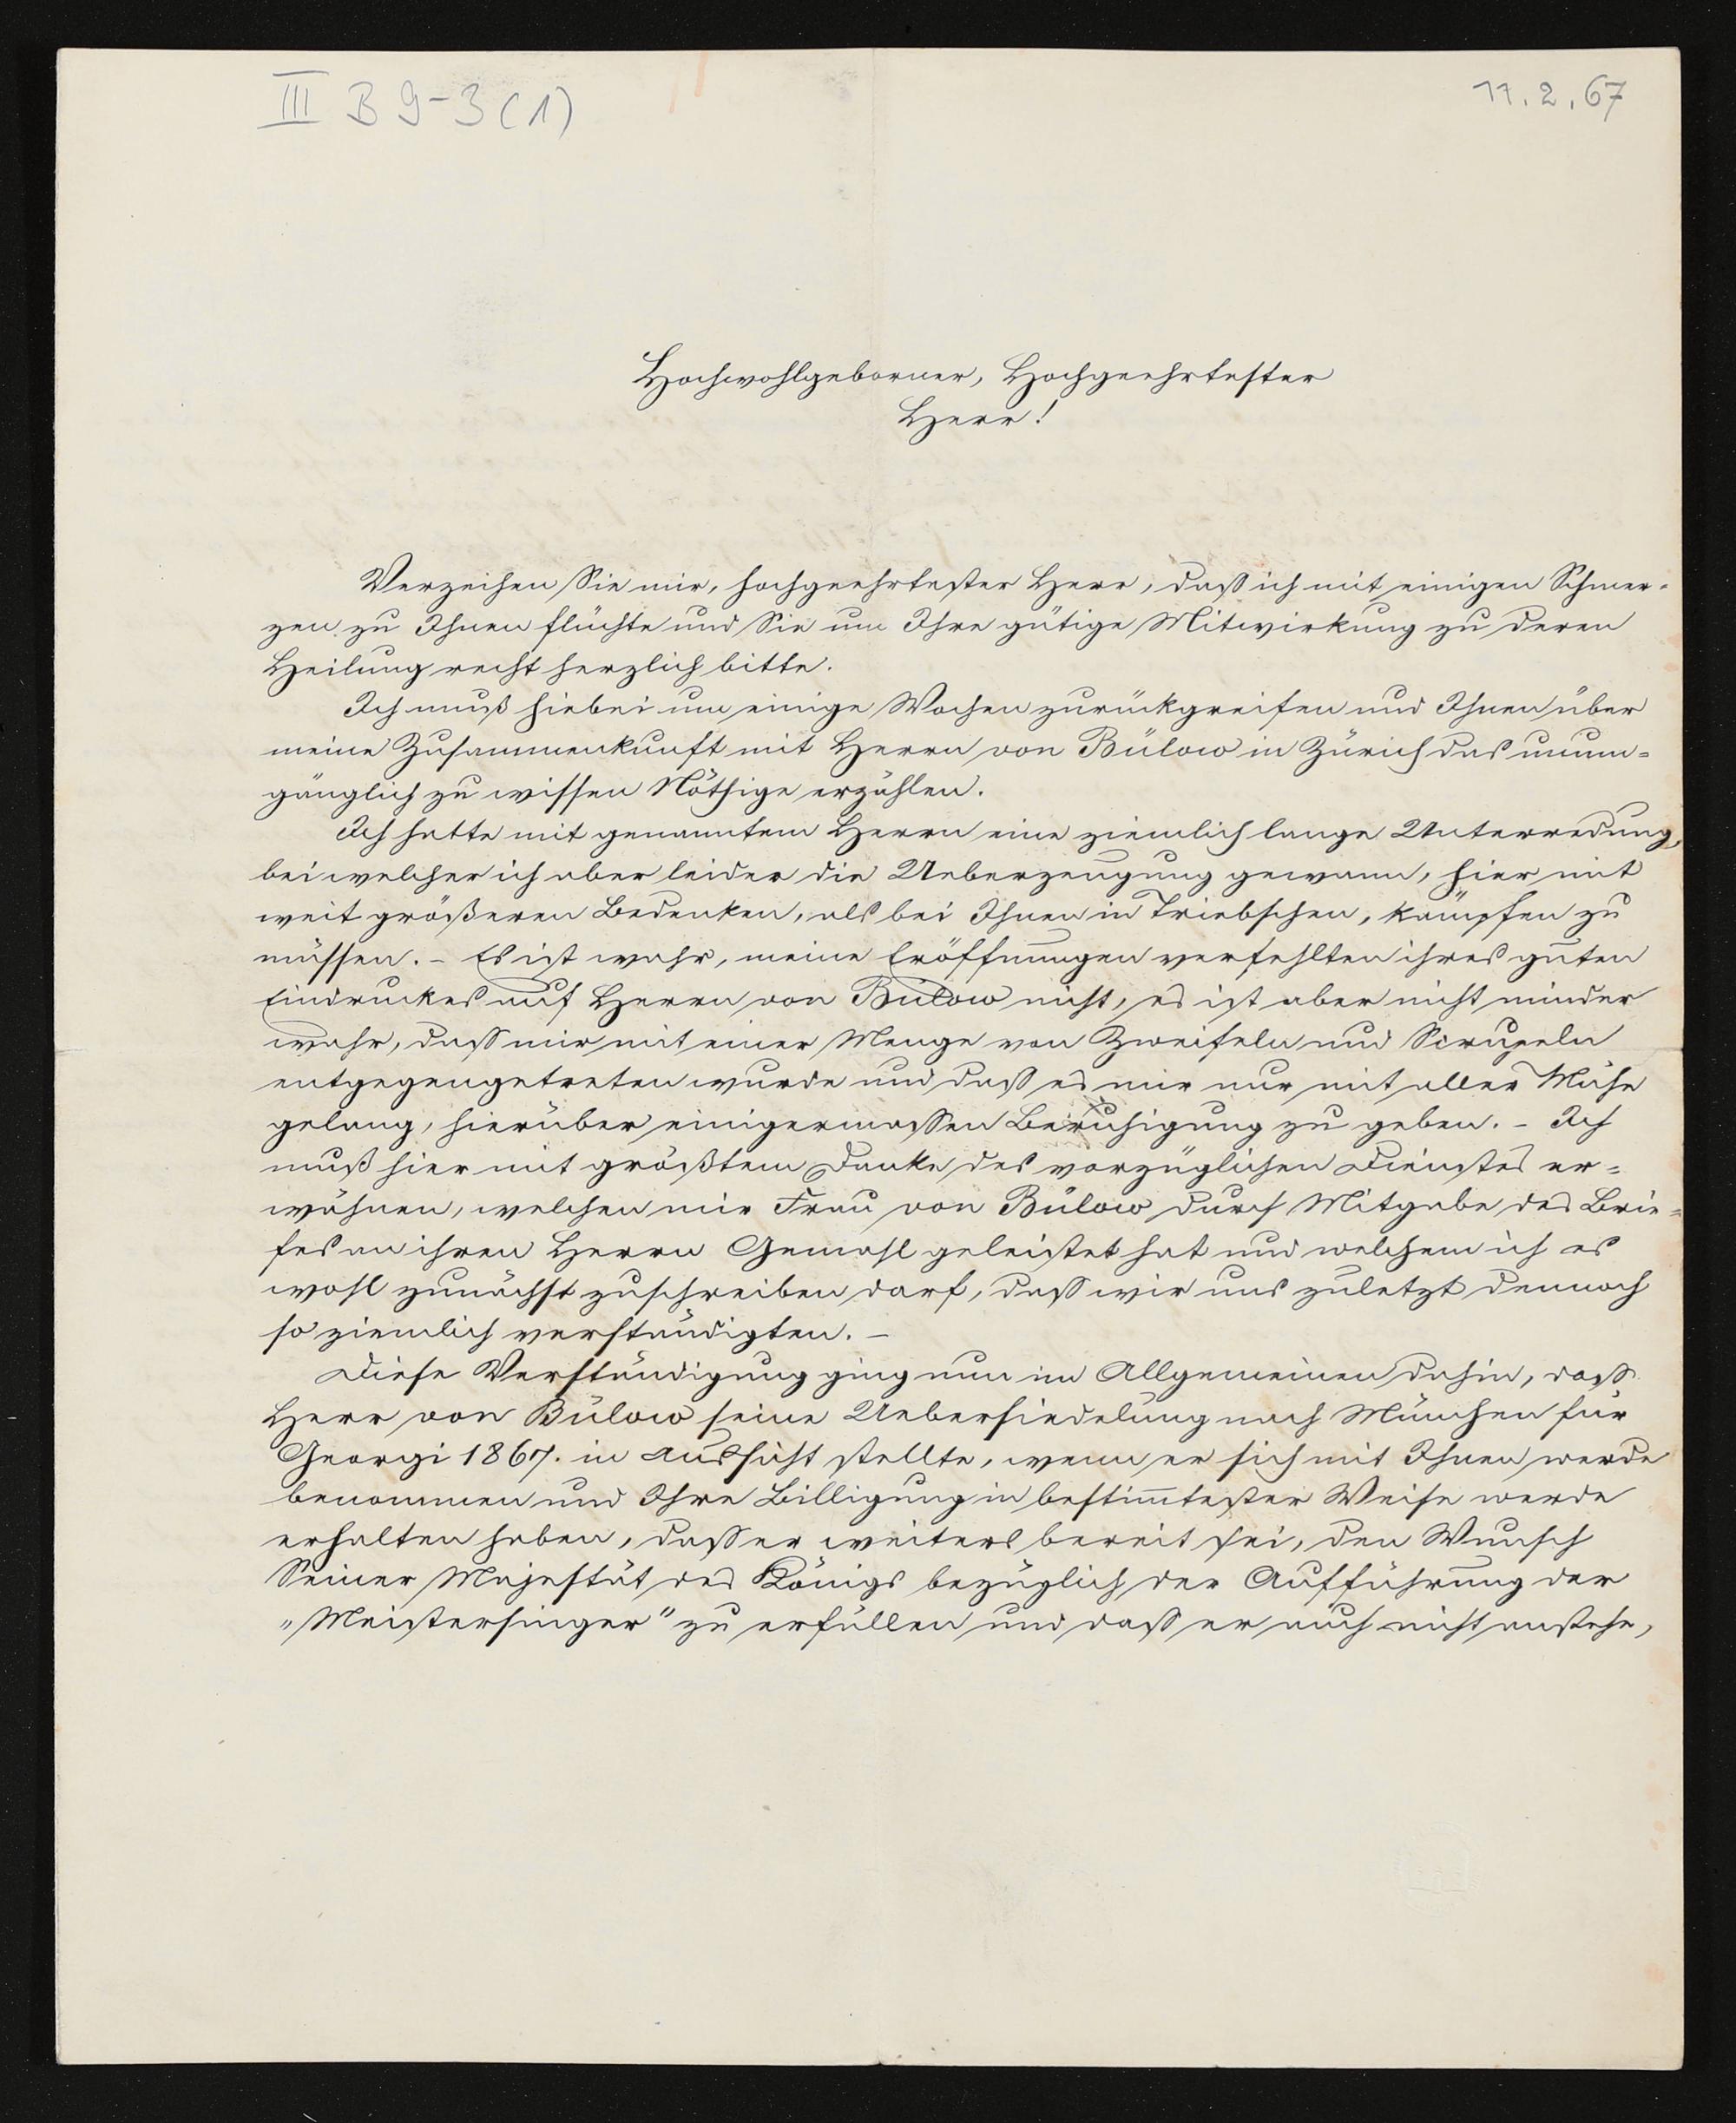 III B 9-3 (1)
11.2.67
Hochwohlgeborner, Hochgeehrtester
Herr!
Verzeihen Sie mir, hochgeehrtester Herr, daß ich mit einigen Schmer-
zen zu Ihnen flüchte und Sie um Ihre gütige Mitwirkung zu deren
Heilung recht herzlich bitte.
Ich muß hiebei um einige Wochen zurückgreifen und Ihnen über
meine Zusammenkunft mit Herrn von Bülow in Zürich das unum-
gänglich zu wissen Nöthige erzählen.
Ich hatte mit genanntem Herrn eine ziemlich lange Unterredung,
bei welcher ich aber leider die Ueberzeugung gewann, hier mit
weit größeren Bedenken, als bei Ihnen in Triebschen, kämpfen zu
müssen. – Es ist wahr, meine Eröffnungen verfehlten ihres guten
Eindruckes auf Herrn von Bülow nicht, es ist aber nicht minder
wahr, daß mir mit einer Menge von Zweifeln und Scrupeln
entgegengetreten wurde und daß es mir nur mit aller Mühe
gelang, hierüber einigermaßen Beruhigung zu geben. – Ich
muß hier mit größtem Danke des vorzüglichen Dienstes er-
wähnen, welchen mir Frau von Bülow durch Mitgabe des Brie-
fes an ihren Herrn Gemahl geleistet hat und welchem ich es
wohl zunächst zuschreiben darf, daß wir uns zuletzt dennoch
so ziemlich verständigten. –
Diese Verständigung ging nun im Allgemeinen dahin, daß
Herr von Bülow seine Uebersiedelung nach München für
Georgi 1867. in Aussicht stellte, wenn er sich mit Ihnen werde
benommen und Ihre Billigung in bestimtester Weise werde
erhalten haben, daß er weiters bereit sei, den Wunsch
Seiner Majestät des Königs bezüglich der Aufführung der
„Meistersinger" zu erfüllen und daß er auch nicht anstehe,